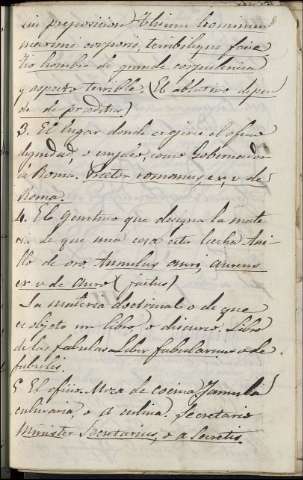 sin preposicion
maximo corporis, terribilique facie
hombre de grande corpulencia
y aspecto terrible. (El ablativo depen
de de praditus)
3. El lugar donde exercio el oficio
dignidad, o empleo, como Gobernador
de Roma. romanus ex, v de
Roma.
4. El Genitivo que designa la mate
ria de que una cosa está hecha Ani
llo de oro Annulus auri, aureus
ex v de auro (factus)
La materia doctrinal o de que
es objeto un libro, o discurso. Libro
de las fabulas Liber fabularius v de
fabulis.
5 El oficio. Moza de cocina, famula
culinaria, v a culina. Secretario
Minister Secretarius, v a Secretis.